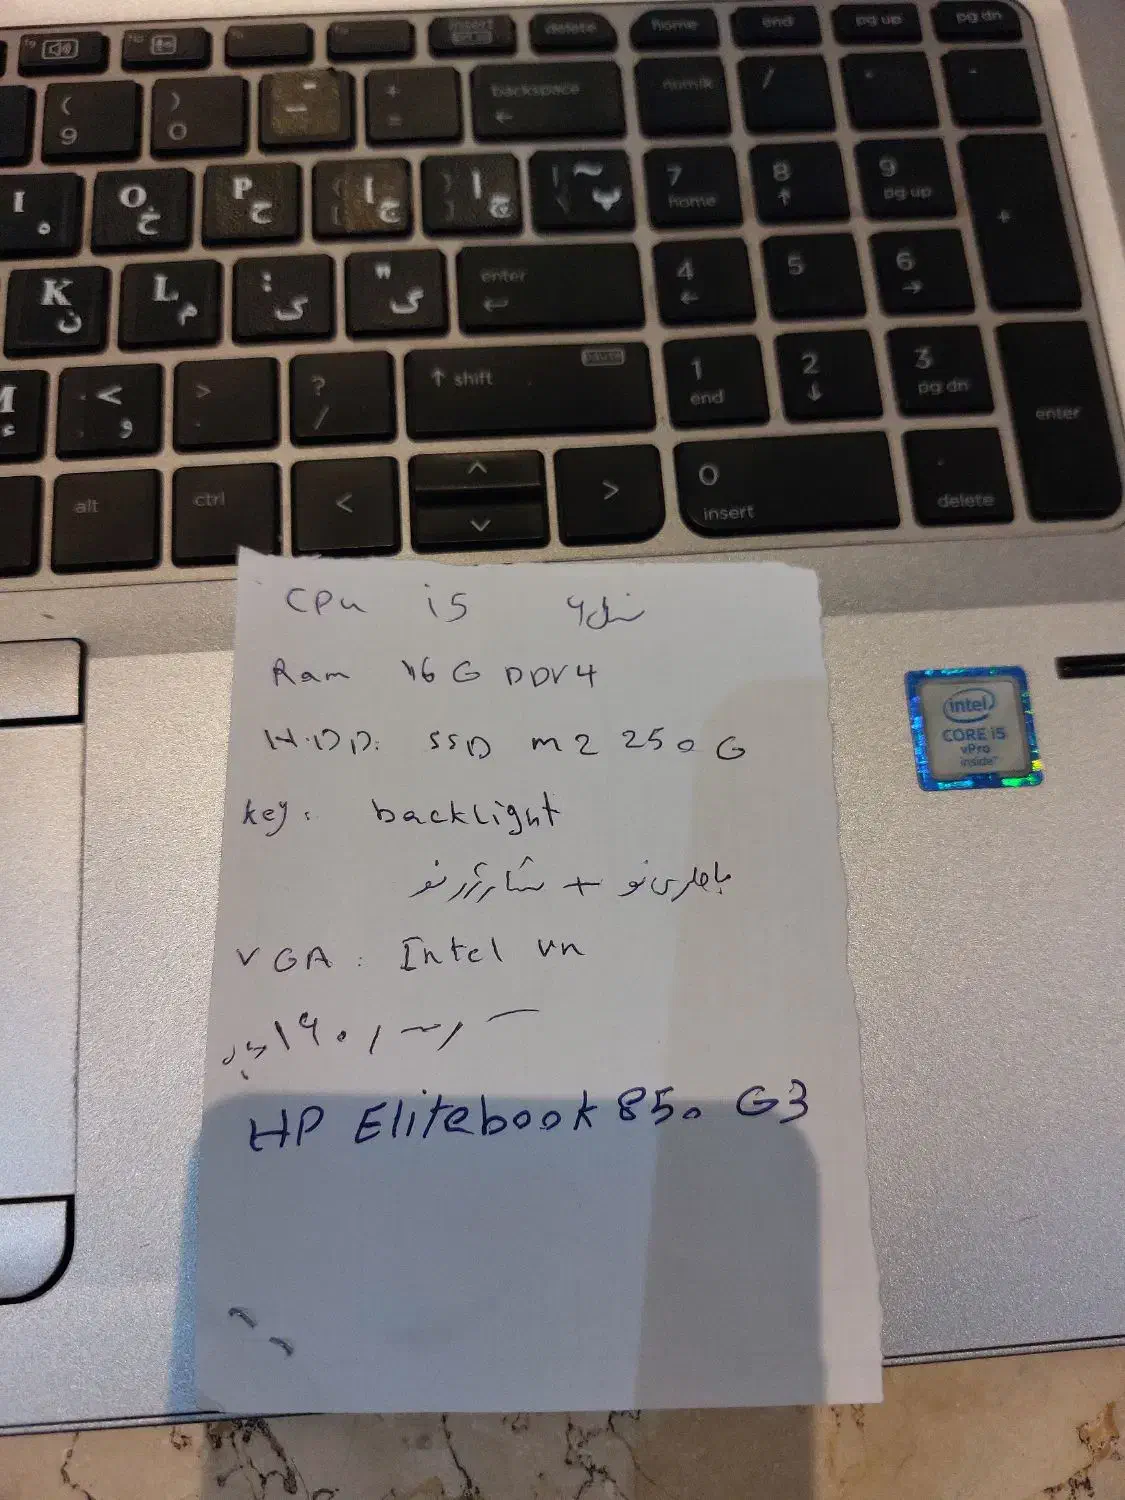 insert
delete
home
end
pg up
pg dn
( 9
) 0
+ =
backspace
numlk
/
*
-
I ه
O خ
P ح
{ [ ج
} ] چ
پ
7 home
8
9 pg up
+
K ن
L م
: ک
" گ
enter
4
5
6
M ء
< و
>
? /
shift
pause
1 end
2
3 pg dn
enter
alt
ctrl
<
>
0 insert
. delete
CPu i5 نسل 6
Ram 16 G DDr4
H.DD: SSD m2 250 G
key: backlight
باطری نو + شارژر نو
VGA: Intel
HP Elitebook 850 G3
intel
CORE i5
vPro
inside™